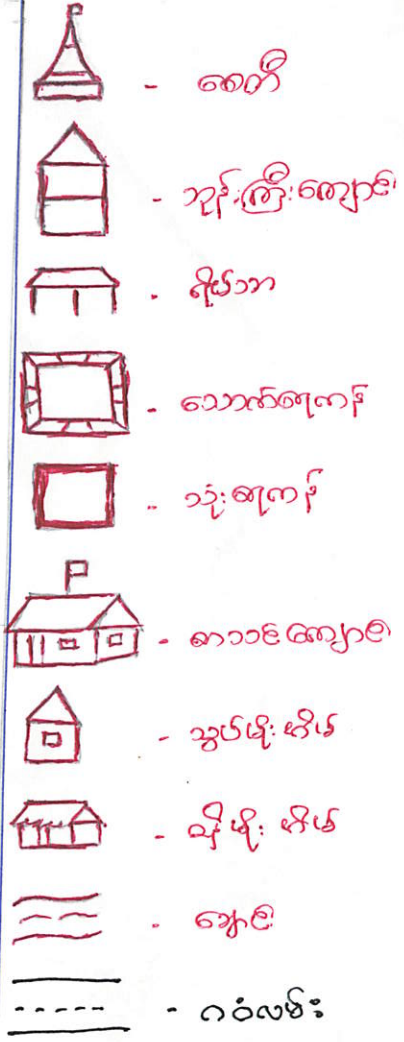 - စေတီ
- ဘုန်းကြီးကျောင်း
- ရိပ်သာ
- သောက်ရေကန်
- သုံးရေကန်
- စာသင်ကျောင်း
- သွပ်မိုးအိမ်
- ဓနိမိုးအိမ်
- ချောင်း
- ဂဝံလမ်း